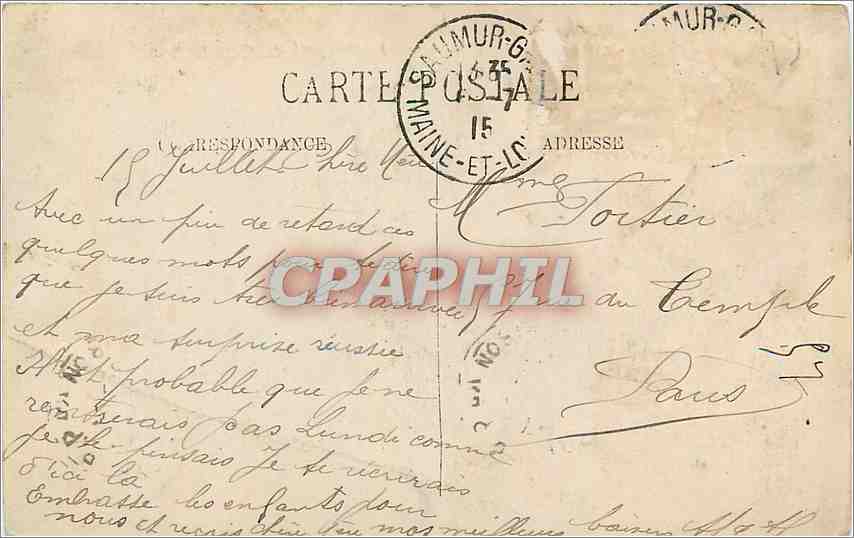 SAUMUR-G
15
MAINE-ET-LO
MUR-G
CARTE POSTALE
CORRESPONDANCE
ADRESSE
15 Juillet Chère
Avec un peu de retard ces
quelques mots pour te dire
que je suis très bien arrivée
et ma surprise réussie
probable que je ne
pas Lundi comme
je le pensais Je te récrirais
d'ici là
Embrasse les enfants pour
nous et reçois chère mes meilleurs baisers
Mme Tortier
du Temple
Paris
CPAPHIL